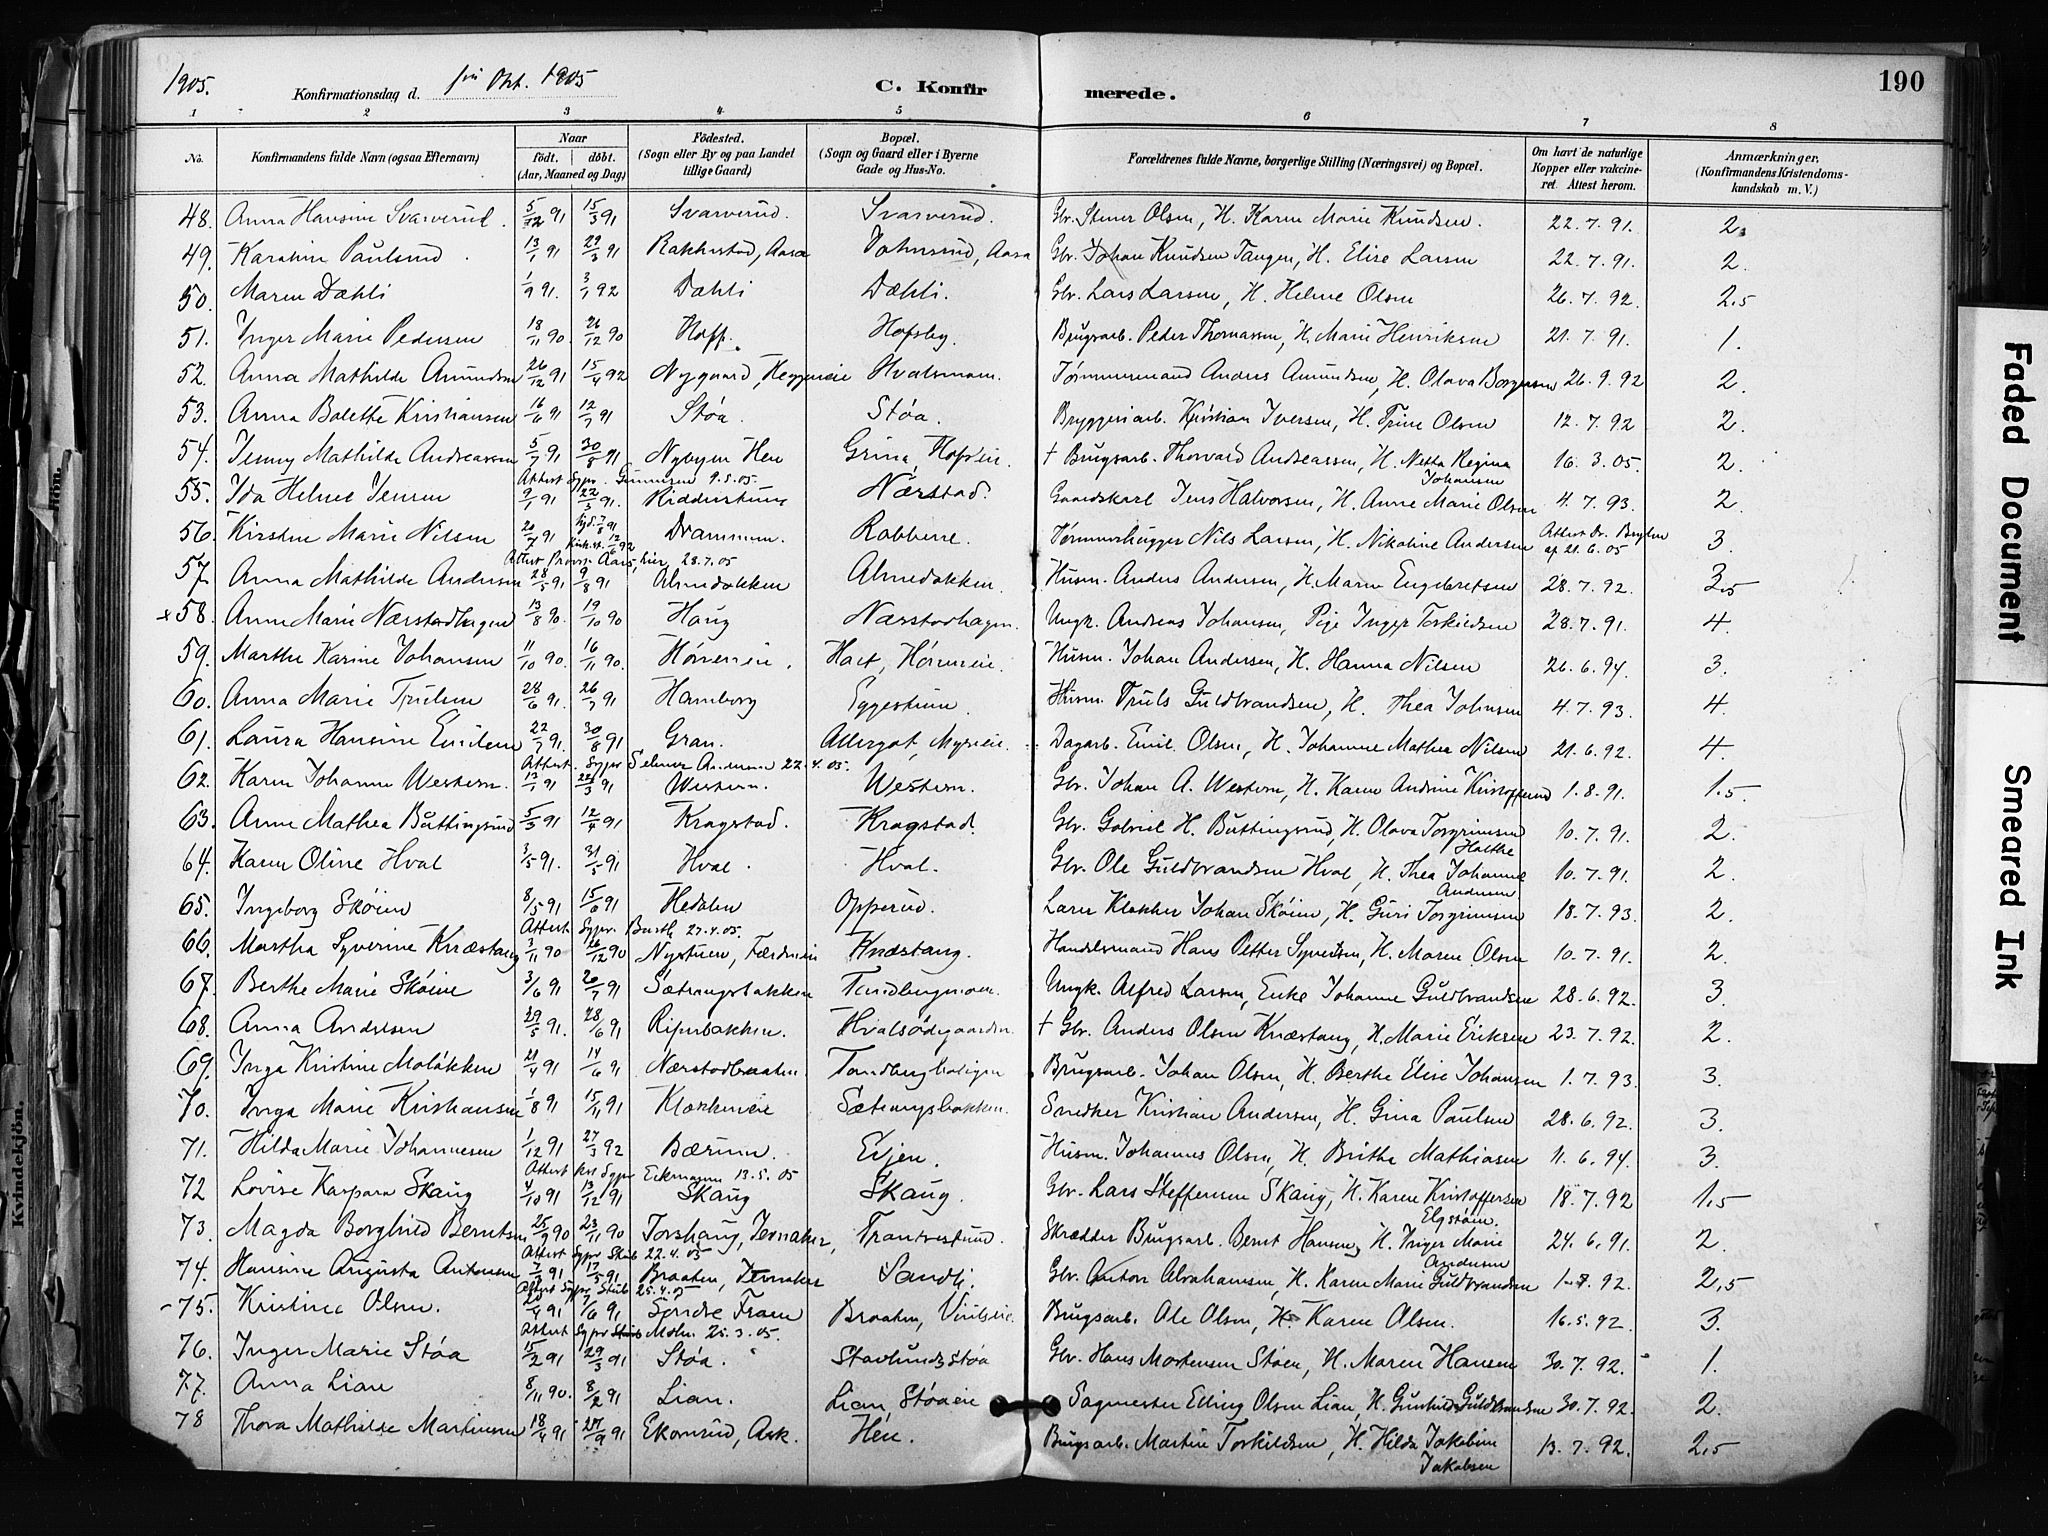 1905. Konfirmationsdag d. 1ste Okt. 1905 C. Konfirmerede. 190
1 2 3 4 5 6 7 8
No. Konfirmandens fulde Navn (ogsaa Efternavn) Naar födt. döbt. (Aar, Maaned og Dag) Födested. (Sogn eller By og paa Landet tillige Gaard) Bopæl. (Sogn og Gaard eller i Byerne Gade og Hus-No. Forældrenes fulde Navne, borgerlige Stilling (Næringsvei) og Bopæl. Om havt de naturlige Kopper eller vakcineret. Attest herom. Anmærkninger. (Konfirmandens Kristendomskundskab m. V.)
48. Anna Hansine Svarverud. 15/3 91 Svarverud. Svarverud. Gbr. Stener Olsen, H. Karen Marie Knudsen. 22.7.91. 2.
49. Karoline Paulsrud. 13/1 91 29/3 91 Rakkestad, Aasa Johnsrud, Aasa Gbr. Johan Knudsen Tangen, H. Elise Larsen 22.7.91. 2.
50. Maren Dæhli 1/9 91. 3/1 92 Dæhli Dæhli. Gbr. Lars Larsen, H. Helene Olsen 26.7.92. 2,5
51. Inger Marie Pedersen 18/11 90. 26/12 90 Hoff. Hofsby. Brugsarb. Peder Thomassen, H. Marie Henriksen 21.7.91. 1.
52. Anna Mathilde Amundsen 26/12 91 15/4 92 Nygaard, Heggeneie Hvalsmoen. Tømmermand Anders Amundsen, H. Olava Borgersen 26.9.92 2.
53. Anna Bolette Kristiansen 16/6 91 12/7 91 Støa. Støa. Bryggeriarb. Kristian Iversen, H. Trine Olsen 12.7.92 2.
54. Jenny Mathilde Andreassen 5/7 91 30/8 91 Nybyen Hen Grina, Hofseie. † Brugsarb. Thorvard Andreassen, H. Netta Regina Johansen 16.3.05. 2.
Attest Sgpr. Gunnersen 9.5.05.
55. Ida Helene Jensen 9/1 91 22/3 91. Ridderstuen Nærstad. Gaardskarl Jens Halvorsen, H. Anne Marie Olsen 4.7.93. 2.
56. Kirstine Marie Nilsen 20/7 91 Hjd. 7/8 91 Kirk. st. 12/6 92 Drammen. Rabbere. Tømmerhugger Nils Larsen, H. Nikoline Andersen Attest Dr. af 21.6.05 3.
Attest Provst Aars, her 28.7.05
57. Anna Mathilde Andersen 28/5 91 9/8 91 Almebakken Almebakken. Husm. Anders Andersen, H. Maren Engebretsen 28.7.92. 3,5
× 58. Anne Marie Nærstadhagen 13/8 90. 19/10 90 Haug Nærstadhagen. Ungk. Andreas Johansen, Pige Inger Torkildsen 28.7.91. 4.
59. Marthe Karine Johansen 11/10 90. 16/11 90. Hørneneie. Haet, Hørneneie. Husm. Johan Andersen, H. Hanna Nilsen 26.6.94. 3.
60. Anna Marie Trulsen 28/6 91. 26/7 91 Hamborg Eggestuen. Husm. Truls Guldbrandsen, H. Thea Johnsen 4.7.93. 4.
61. Laura Hansine Emilsen 22/7 91. 30/8 91 Gran. Allergot, Myreeie. Dagarb. Emil Olsen, H. Johanne Mathea Nilsen 21.6.92. 4.
Attest. Sgpr Selmer Andersen 22.4.05.
62. Karen Johanne Western. 13/1 91 22/3 91 Western. Western. Gbr. Johan A. Western, H. Karen Andrine Kristoffersen 1.8.91. 1.5.
63. Anne Mathea Buttingsrud 5/3 91 12/4 91 Kragstad. Kragstad. Gbr. Gabriel H. Buttingsrud, H. Olava Torgrimsen Halthe 10.7.91. 2.
64. Karen Oline Hval 3/5 91. 31/5 91 Hval. Hval. Gbr. Ole Guldbrandsen Hval, H. Thea Johanne Andersen 10.7.91. 2.
65. Ingeborg Skøien 8/5 91 15/6 91 Hedalen Opperud. Lærer Klokker Johan Skøien, H. Guri Torgrimsen 18.7.93. 2.
Attest Sgpr. 27.4.05.
66. Martha Syverine Knæstang 3/11 90 26/12 90 Nystuen, Færdeneie Knæstang. Handelsmand Hans Petter Syversen, H. Maren Olsen 10.7.91. 2.
67. Berthe Marie Skøien 3/6 91 26/7 91 Sætrangsbakken Tandbergmoen. Ungk. Alfred Larsen, Enke Johanne Guldbrandsen 28.6.92. 3.
68. Anna Andersen 29/5 91. 28/6 91 Ripenbakken. Hvalsødegaarden. † Gbr. Anders Olsen Knæstang, H. Marie Eriksen 23.7.92. 2.
69. Inga Kristine Moløkken 21/4 91 14/6 91 Nærstadbraaten. Tandbergboligen Brugsarb. Johan Olsen, H. Berthe Elise Johansen 1.7.93. 3.
70. Inga Marie Kristiansen 1/8 91 15/11 91 Klækkeneie Sætrangsbakken. Snedker Kristian Andersen, H. Gina Paulsen 28.6.92. 3.
71. Hilda Marie Johannesen 1/12 91 27/3 92 Bærum. Evjen. Husm. Johannes Olsen, H. Brithe Mathiasen 11.6.94. 3.
Attest Sgpr Eckmann 13.5.05
72 Lovise Kaspara Skaug 4/10 91 13/12 91 Skaug Skaug. Gbr. Lars Steffensen Skaug, H. Karen Kristoffersen 18.7.92 1,5
73. Magda Borghild Berntsen 25/9 90 23/11 90 Torshaug, Jevnaker, Tranvestuen. Skrædder Brugsarb. Bernt Hansen, H. Inger Marie Elgstøen. 24.6.91. 2.
Attest Sgpr Stub 22.4.05
74. Hansine Augusta Antonsen 91 17/5 91 Braaten, Jevnaker Sandli. Gbr. Anton Abrahamsen, H. Karen Marie Guldbrandsen Andersen 1.7.92. 2,5
Attest Sgpr Stub 25.4.05
- 75. Kristine Olsen. 20/4 91 7/6 91 Søndre Fram Braaten, Viulseie. Brugsarb. Ole Olsen, H. Karen Olsen. 16.5.92. 3.
Attest Sgpr Mohn 25.3.05.
76. Inger Marie Støa 15/2 91 29/3 91 Støa. Stavlundsstøa Gbr. Hans Mortensen Støen, H. Maren Hansen 30.7.92. 1.
77. Anna Lian 8/11 90. 8/2 91 Lian. Lian, Støaeie Sagmester Elling Olsen Lian, H. Gunhild Guldbrandsen 30.7.92. 2.
78 Thora Mathilde Martinsen 18/4 91 27/9 91 Ekornrud, Ask. Hen. Brugsarb. Martin Torkildsen, H. Hilda Jakobine Jakobsen 13.7.92. 2,5
Faded Document
Smeared Ink
Kvindekjön.